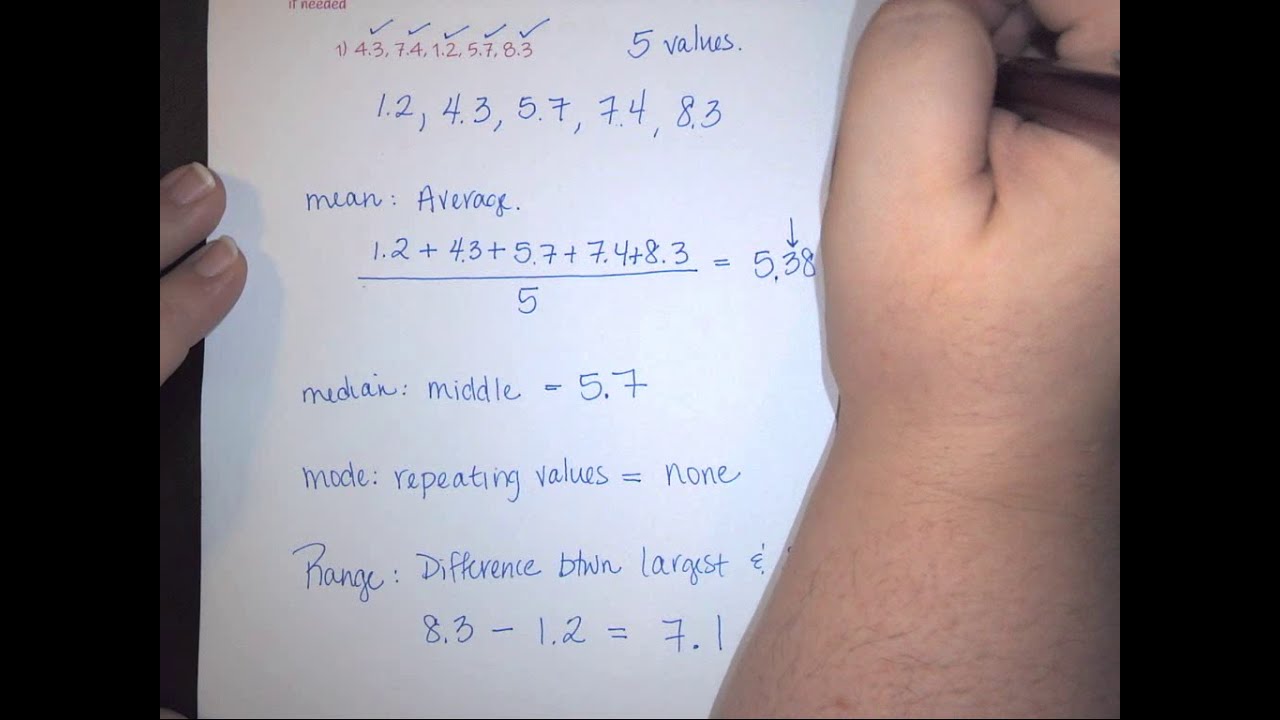 if needed
1) 4.3, 7.4, 1.2, 5.7, 8.3
5 values.
1.2, 4.3, 5.7, 7.4, 8.3
mean: Average.
1.2 + 4.3 + 5.7 + 7.4 + 8.3 = 5.38
5
median: middle = 5.7
mode: repeating values = none
Range: Difference btwn largest &
8.3 - 1.2 = 7.1